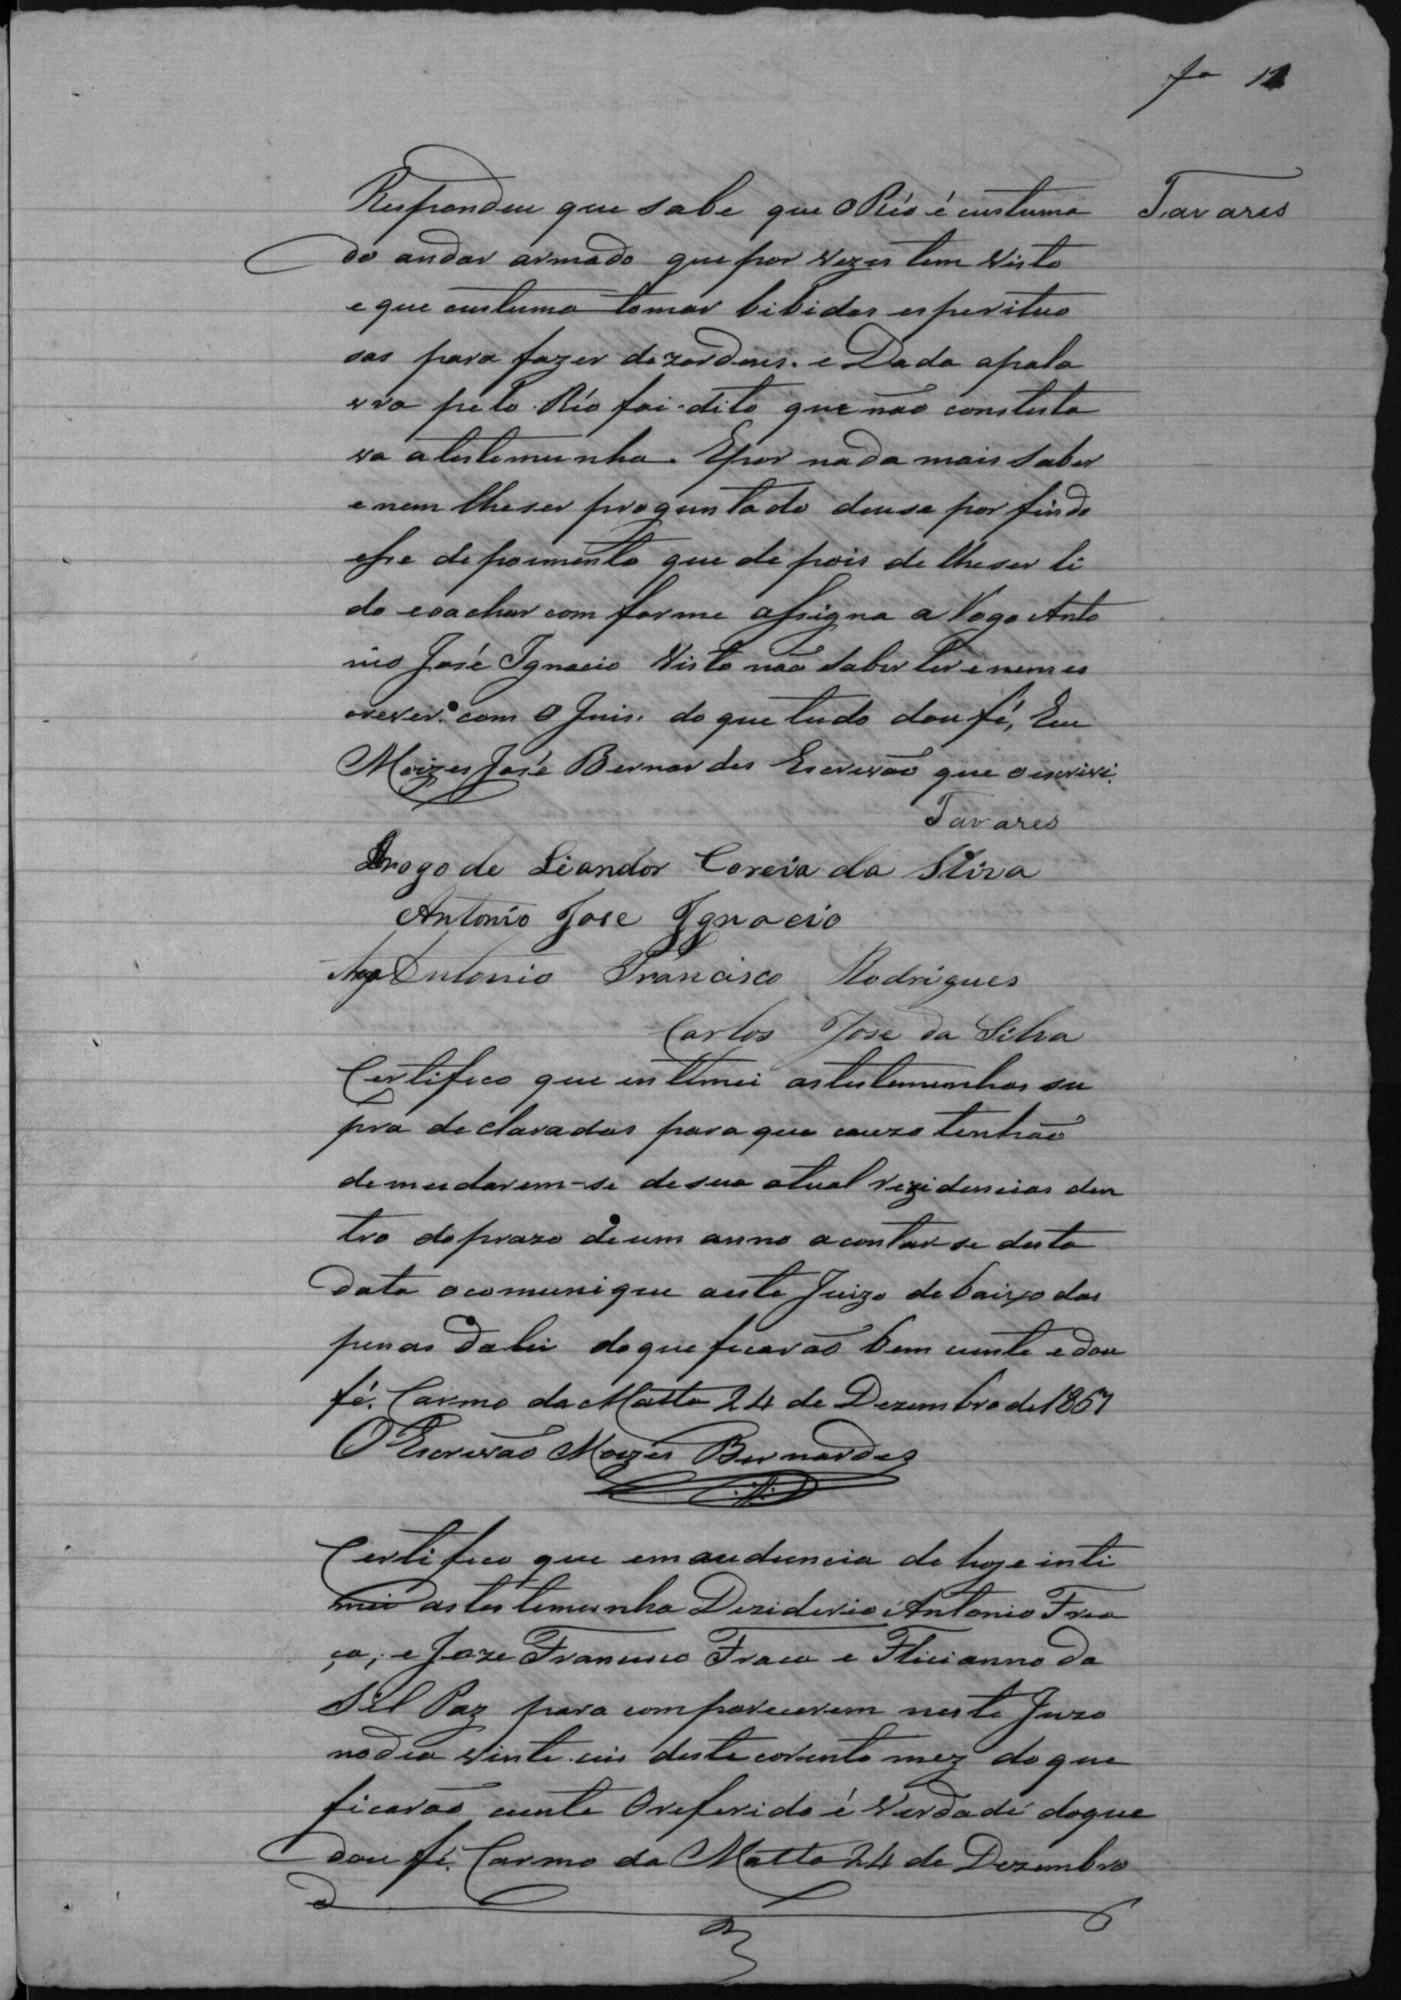 fo 12
Tavares
Respondeu que sabe que o Réo é custuma
do andar armado que por vezes tem visto
e que custuma tomar bibidas espirituo
sas para fazer dezordens. e Dada apala
vra pelo Réo foi dito que não contesta
va a testemunha. Epor nada mais saber
e nem lheser proguntado deuse por findo
esse depoimento que depois de lheser li
do eoachar com forme assigna a Rogo Anto
nio José Ignacio visto não saber ler e nem es
crever. com o Juis. do que tudo dou fé, Eu
Moizes José Bernardes Escrivão que o escrivi.
Tavares
Arogo de Liandor Coreia da Silva
Antonio Jose Ignacio
Antonio Francisco Rodrigues
Carlos Jose da Silva
Certifico que intimei as testemunhas su
pra declaradas para que cauzo tenhão
de mudarem-se de sua atual rezidencias den
tro do prazo de um anno a contar-se desta
data o comunique aeste Juizo debaixo das
penas da lei do que ficarão bem ciente e dou
fé. Carmo da Matta 24 de Dezembro de 1867
O Escrivão Moizes Bernardes
Certifico que em audiencia de hoje inti
mei as testemunha Deziderio Antonio Fra
ça, e Joze Francisco Fraca e Fliciano da
Sil Paz para comparecerem neste Juizo
no dia vinte seis deste corrente mez do que
ficarão ciente O referido é verdade do que
dou fé. Carmo da Matta 24 de Dezembro